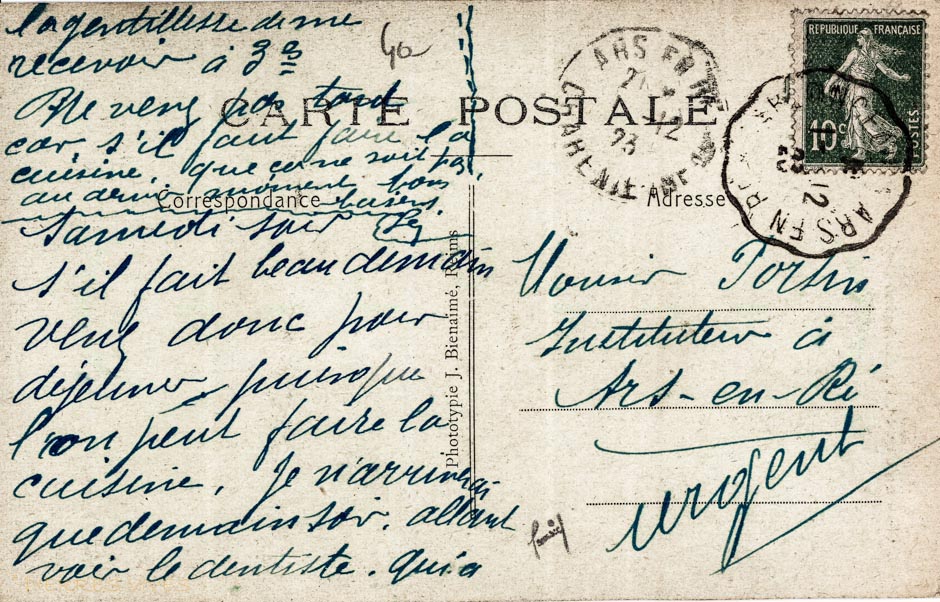 la gentillesse de me
recevoir à 3 h
Ne venez pas tard
car s'il faut faire la
cuisine, que ce ne soit pas
au dernier moment. bons
baisers
CARTE POSTALE
Correspondance
Adresse
Samedi soir
s'il fait beau demain
venez donc pour
déjeuner puisque
l'on peut faire la
cuisine. Je n'arriverai
que demain soir. allant
voir le dentiste. qui a
Phototypie J. Bienaimé, Reims
40
ARS EN RÉ
12
23
RÉPUBLIQUE FRANÇAISE
10c
POSTES
ARS EN RÉ
12
Monsieur
Instituteur à
Ars-en-Ré
urgent